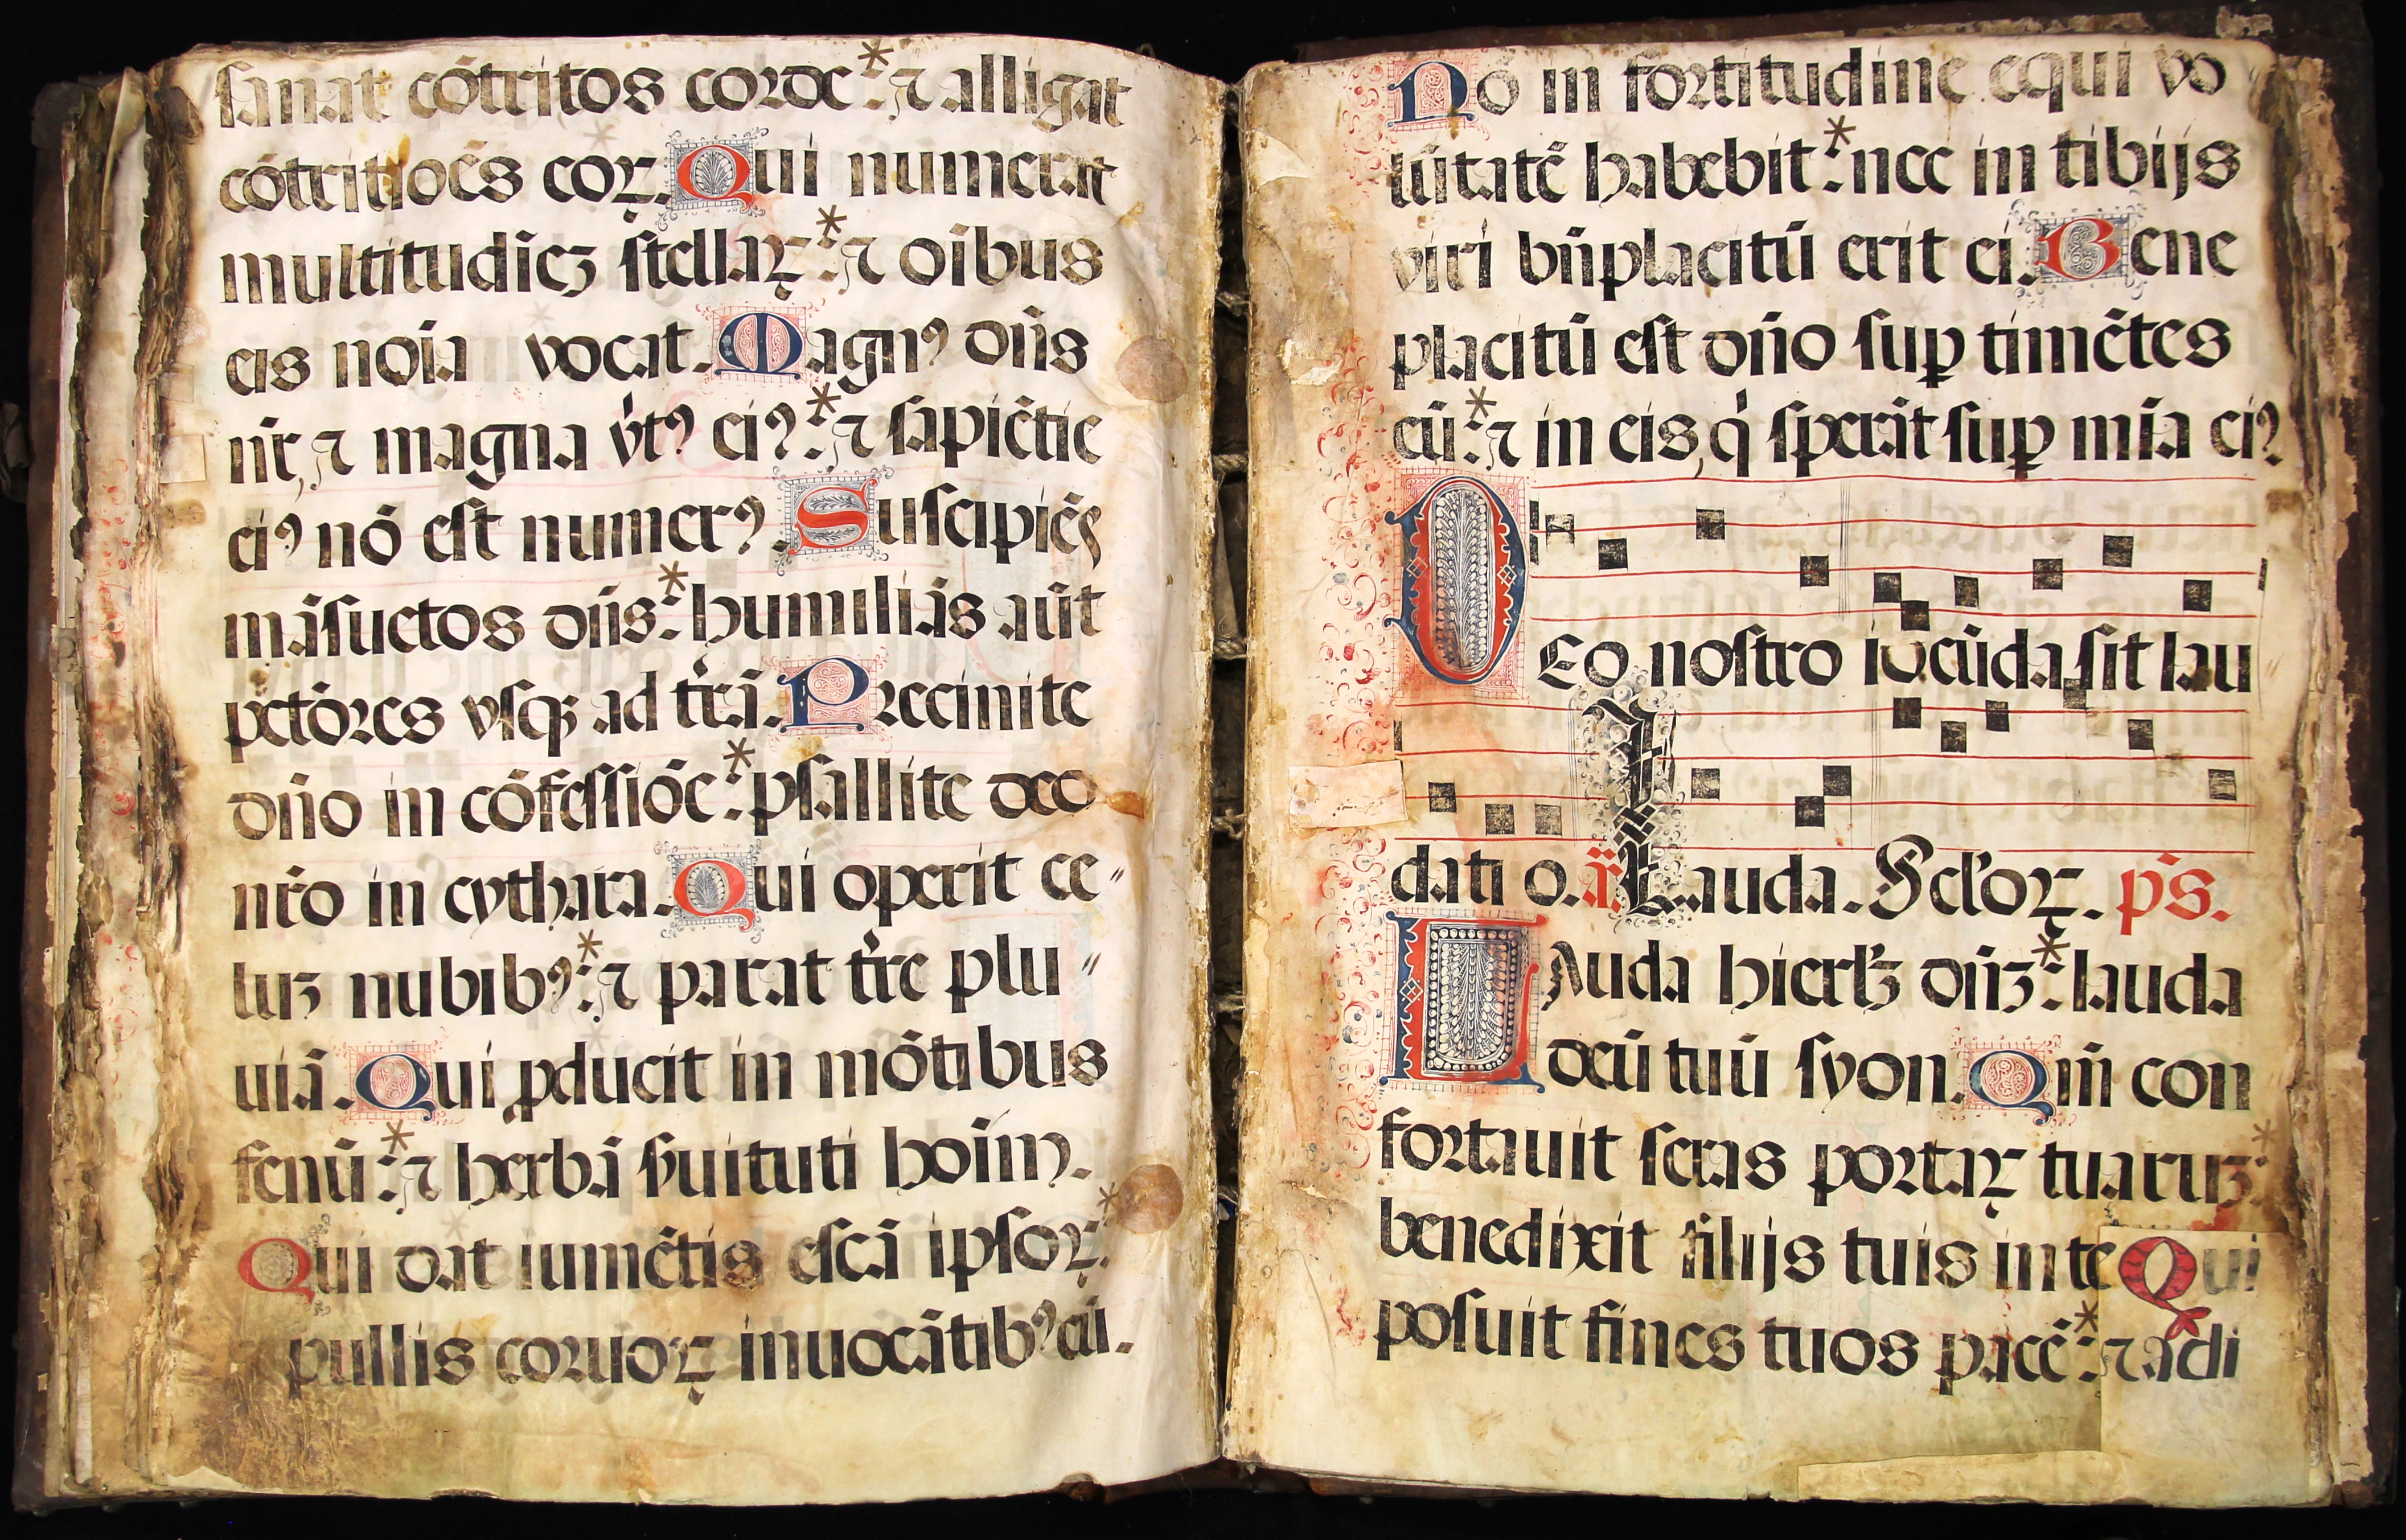 sanat cõtritos corde: ⁊ alligat
cõtritiões coꝝ. Qui numerat
multitudiēꝫ stellaꝝ: ⁊ oībus
eis noīa vocat. Magnꝰ dn̄s
nr̄, ⁊ magna v̓tꝰ eiꝰ: ⁊ sapiētie
eiꝰ nō est numerꝰ. Suscipiēs
māsuetos dn̄s: humiliās aūt
pctōres vsqꝫ ad tr̄ā. Precinite
dn̄o in cōfessiōe: psallite deo
nr̄o in cythara. Qui operit ce〃
luꝫ nubibꝰ: ⁊ parat tr̄re plu〃
uiā. Qui ꝓducit in mōtibus
fenū: ⁊ herbā ẜuituti hoīm.
Qui dat iumētis escā ipsoꝝ:
pullis coruoꝝ inuocātibꝰ eū.
Nō in fortitudine equi vo
lūtatē habebit: nec in tibijs
viri bn̄placitū erit ei. Bene
placitū est dn̄o suꝑ timētes
eū: ⁊ in eis, q̓ sperāt suꝑ mīa eiꝰ
DEo nostro iocūda sit lau
datio. añ. Lauda. Sc̓loꝝ. p̄s.
LAuda hierlꝫ dn̄ꝫ: lauda
deū tuū syon. Qm̄ con
fortauit seras portaꝝ tuaruꝫ:
benedixit filijs tuis in te Qui
posuit fines tuos pacē: ⁊ adi